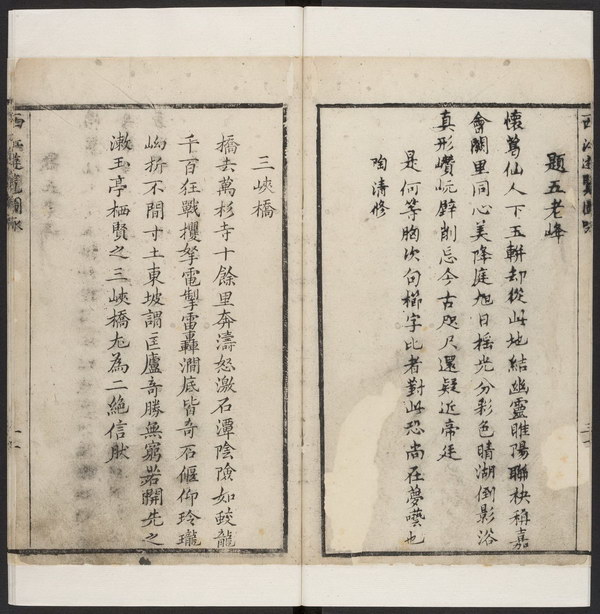 題五老峰
懷葛仙人下五輧却從此地結幽靈睢陽聯袂稱嘉
會闕里同心美降庭旭日搖光分彩色晴湖倒影浴
真形巑岏壁削忘今古咫尺還疑近帝廷
是何等胸次句櫛字比者對此恐尚在夢囈也
陶清修
三峽橋
橋去萬杉寺十餘里奔濤怒激石潭陰險如蛟龍
千百狂戰攫拏電掣雷轟澗底皆奇石偃仰玲瓏
岰折不間寸土東坡謂匡廬奇勝無窮若開先之
漱玉亭栖賢之三峽橋尤為二絕信肰